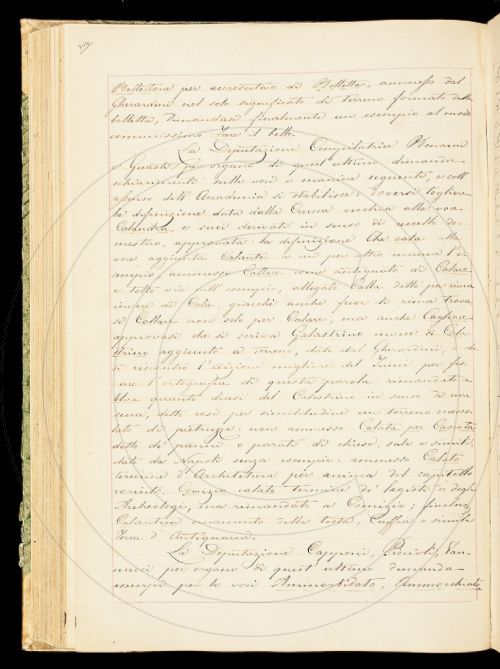 Bellettone per accrescitivo di Belletta, ammesso dal
Gherardini nel solo significato di terreno formato dalla
belletta, dimandasi finalmente un esempio al modo
comunissimo Fare il bello.
La Deputazione Compilatrice Bonaini
e Guasti, per organo di quest'ultimo domanda
schiarimenti sulle voci e maniere seguenti, e coll'
assenso dell'Accademia si stabilisce: doversi togliere
la definizione data dalla Crusca
Calandra, e suoi derivati in senso di uccello do-
mestico, approvata la definizione che cala alla
voce aggiunta Calante a cui per altro manca l'e-
sempio, ammesso Callare come antiquato di Calare
e tolto via all'esempio, allegato Calla detto per rima
invece di Cala, giacchè anche fuor di rima trova
si Callare non solo per Calare, ma anche Cagliare
approvasi che si scriva Galastrino invece di Cala
strino aggiunto a terreno, dato dal Gherardini, e che
si riscontri l'edizione migliore del per fis
sare l'ortografia di questa parola, rimandato a
Una quanto dicesi del Calestrino in senso di uva
secca, detto così per similitudine un terreno misco
lato di pietruzze: non ammesso Calata per Cascata
detto de' panni o parati di chiese, sale e simili
dato da Napoli senza esempio: ammesso Calato
termine d'Architettura per anima del capitello
corintio, Comizio calato termine de' legisti e degli
Archeologi, ma rimandato a Comizio; finalmente
Calantica ornamento della testa, Cuffia o simile
Term. d'Antiquaria.
La Deputazione Capponi, Piccioli, Van-
nucci per organo di quest'ultimo dimanda
esempi per le voci Ammorbidato, Ammorchiato